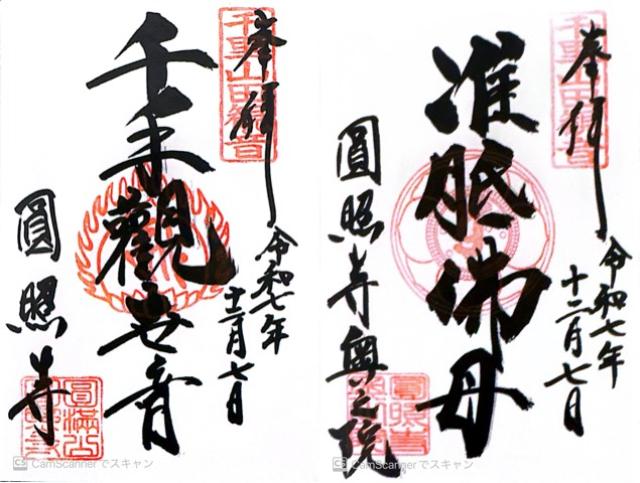 奉拝
令和七年
十二月七日
千手觀世音
圓照寺
CS CamScannerでスキャン
奉拝
令和七年
十二月七日
准胝佛母
圓照寺奥之院
CS CamScannerでスキャン